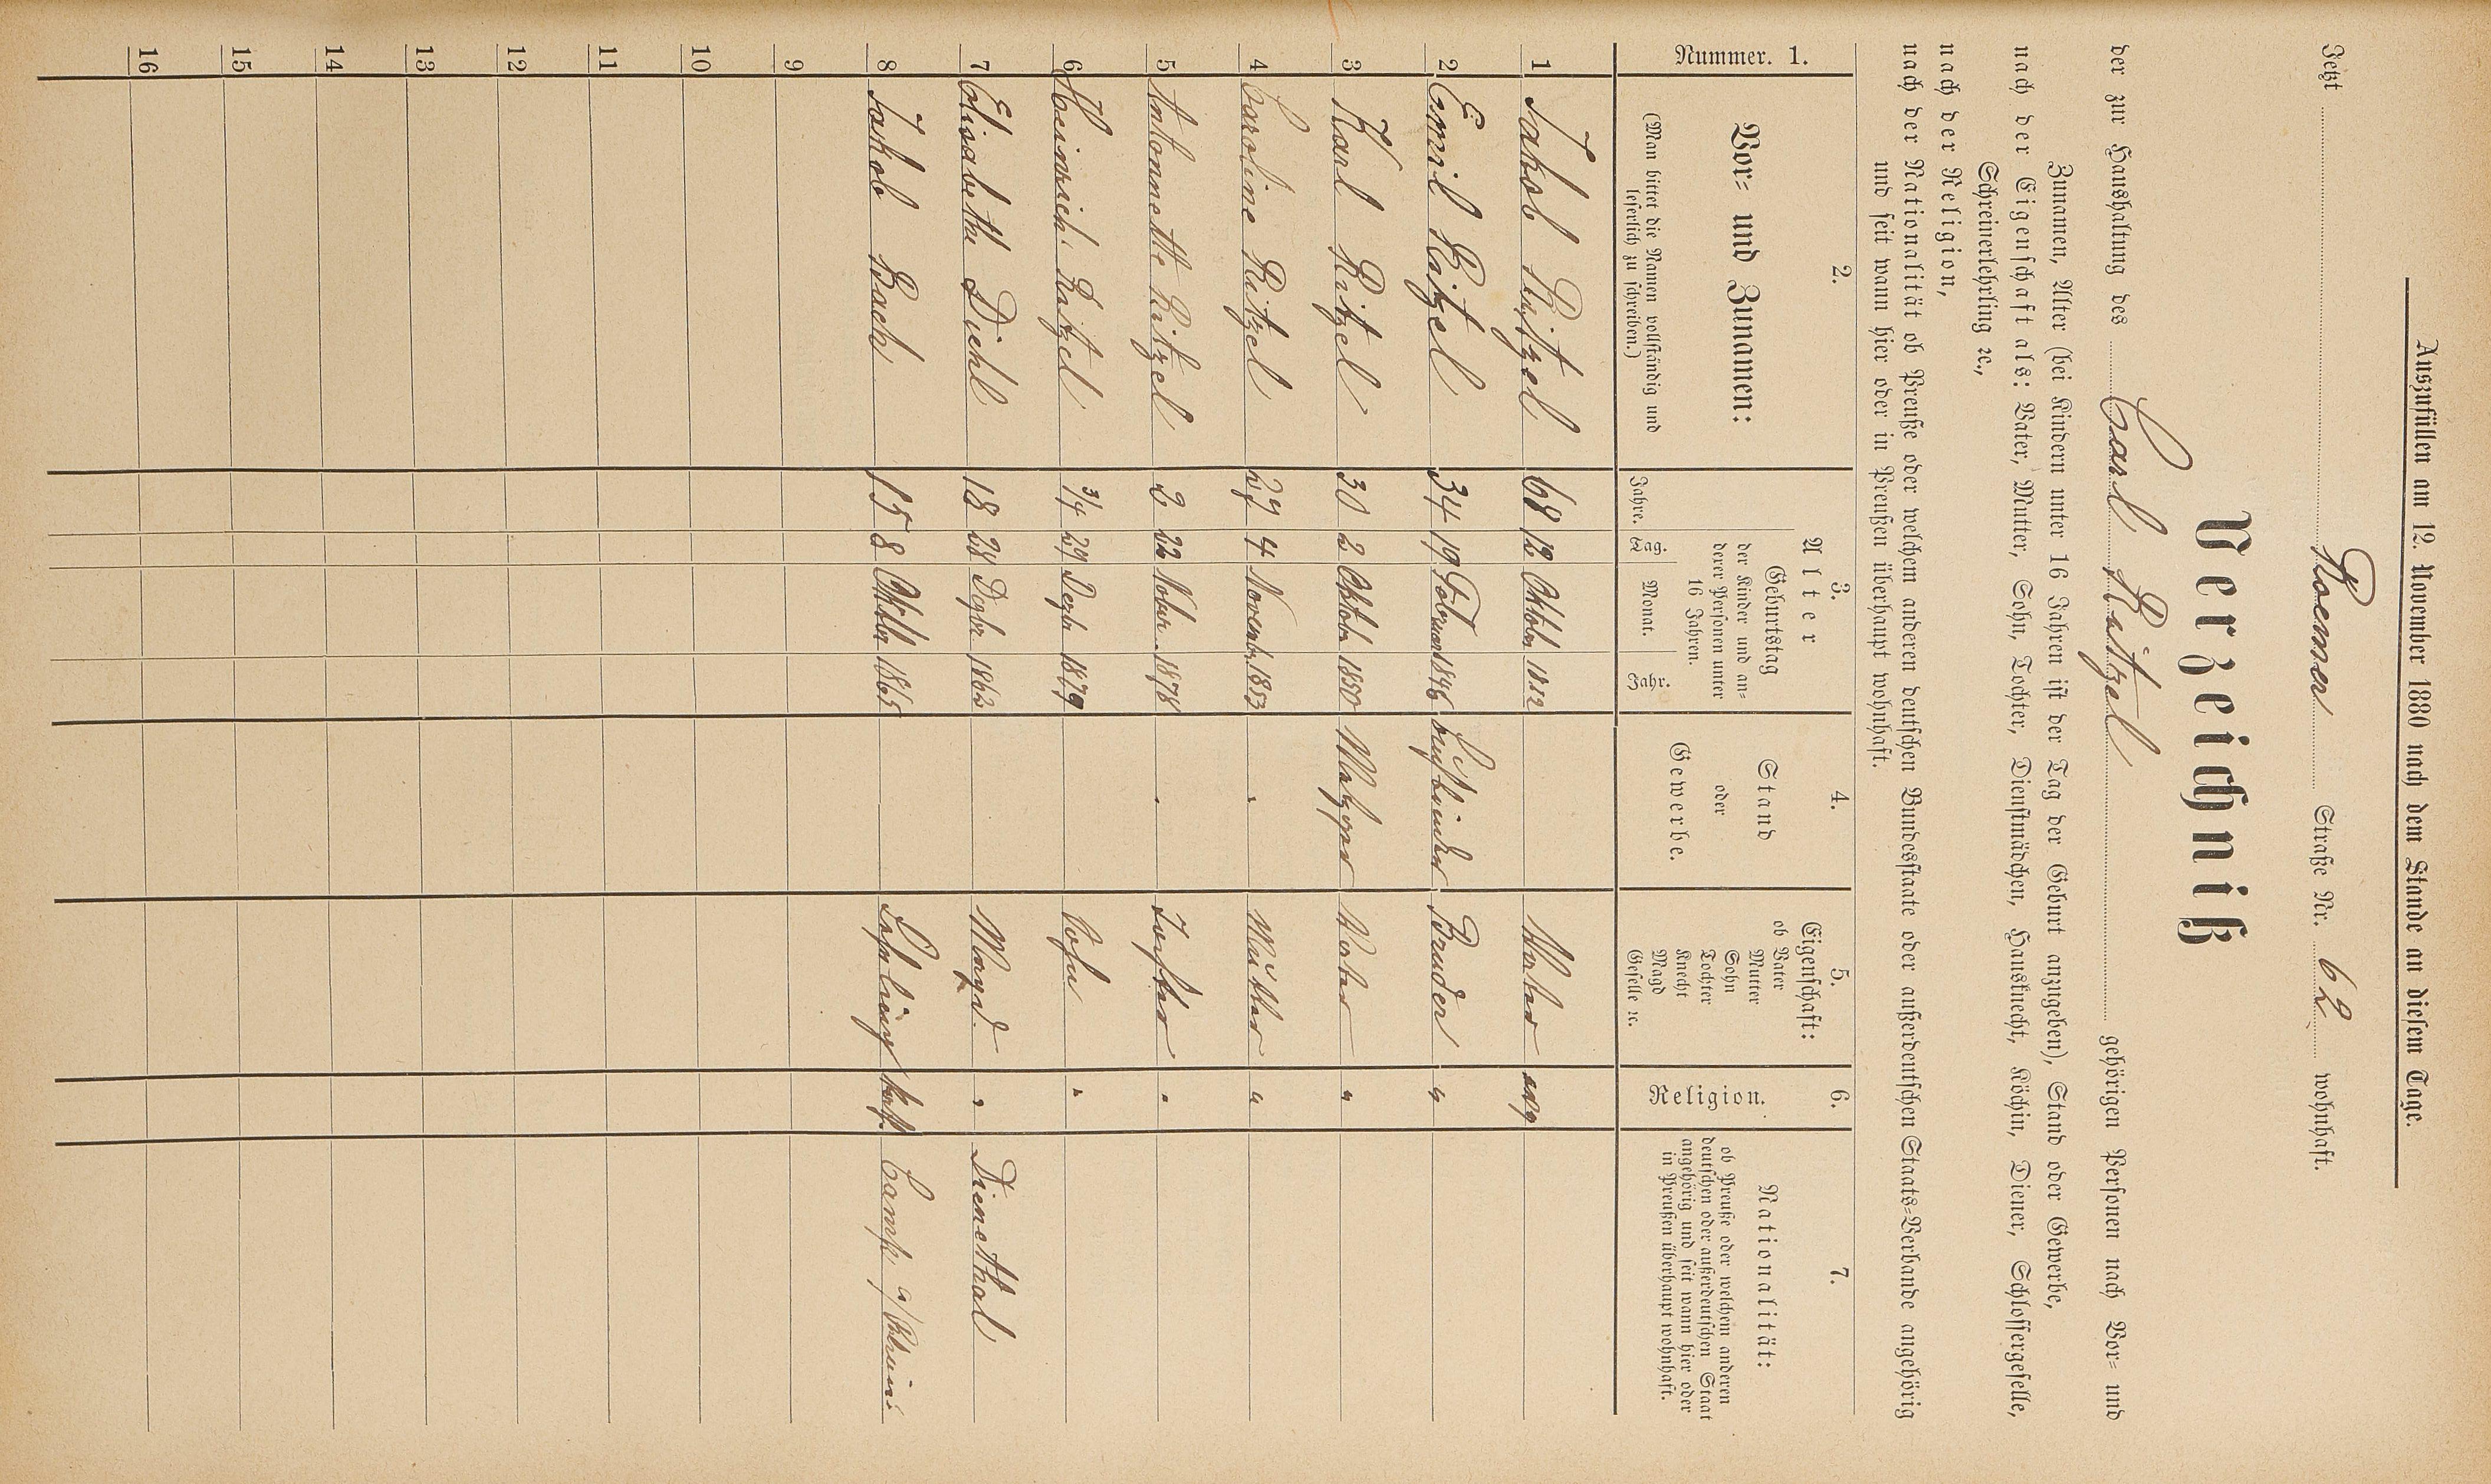 Auszufüllen am 12. November 1880 nach dem Stande an diesem Tage.
Jetzt Roemer Straße Nr. 62 wohnhaft.
Verzeichniß
der zur Haushaltung des Carl Ritzel gehörigen Personen nach Vor- und
Zunamen, Alter (bei Kindern unter 16 Jahren ist der Tag der Geburt anzugeben), Stand oder Gewerbe,
nach der Eigenschaft als: Vater, Mutter, Sohn, Tochter, Dienstmädchen, Hausknecht, Köchin, Diener, Schlossergeselle,
Schreinerlehrling ꝛc.,
nach der Religion,
nach der Nationalität ob Preuße oder welchem anderen deutschen Bundesstaate oder außerdeutschen Staats-Verbande angehörig
und seit wann hier oder in Preußen überhaupt wohnhaft.
Nummer. 1.
2.
Vor- und Zunamen:
(Man bittet die Namen vollständig und
leserlich zu schreiben.)
3.
Alter
Geburtstag
der Kinder und an-
derer Personen unter
16 Jahren.
Jahre. Tag. Monat. Jahr.
4.
Stand
oder
Gewerbe.
5.
Eigenschaft:
ob Vater
Mutter
Sohn
Tochter
Knecht
Magd
Geselle ꝛc.
6.
Religion.
7.
Nationalität:
ob Preuße oder welchem anderen
deutschen oder außerdeutschen Staat
angehörig und seit wann hier oder
in Preußen überhaupt wohnhaft.
1 Jakob Ritzel 68 12 Oktobr 1812 Vater evg
2 Emil Ritzel 34 19 Februar 1846 Bruder "
3 Karl Ritzel 30 2 Oktobr 1850 Metzger Vater "
4 Caroline Ritzel 27 4 Novembr 1853 " Mutter "
5 Antonnette Ritzel 2 22 Novbr. 1878 " Tochter "
6 Heinrich Ritzel 3/4 29 Dezbr 1879 Sohn "
7 Elisabethe Diehl 18 28 Dezbr 1862 Magd. " Dienethal
8 Jakob Bach 15 8 Oktbr 1865 Lehrling kath. Camp a/Rhein.
9
10
11
12
13
14
15
16